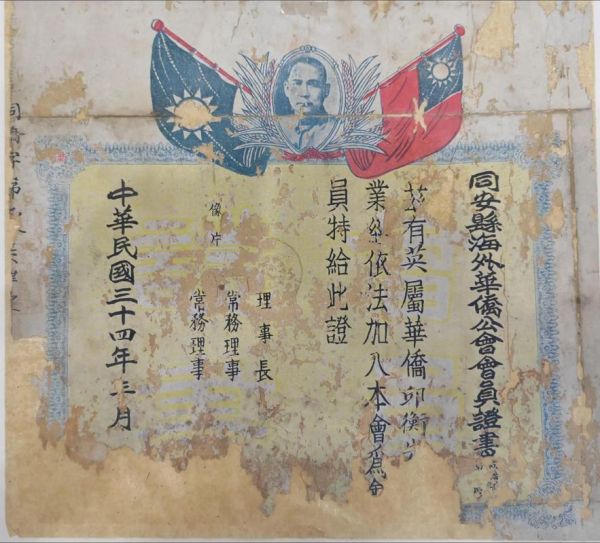 同安縣海外華僑公會會員證書
茲有英屬華僑邱衡
業經依法加入本會為會
員特給此證
理事長
常務理事
常務理事
像片
中華民國三十四年三月
同僑字第